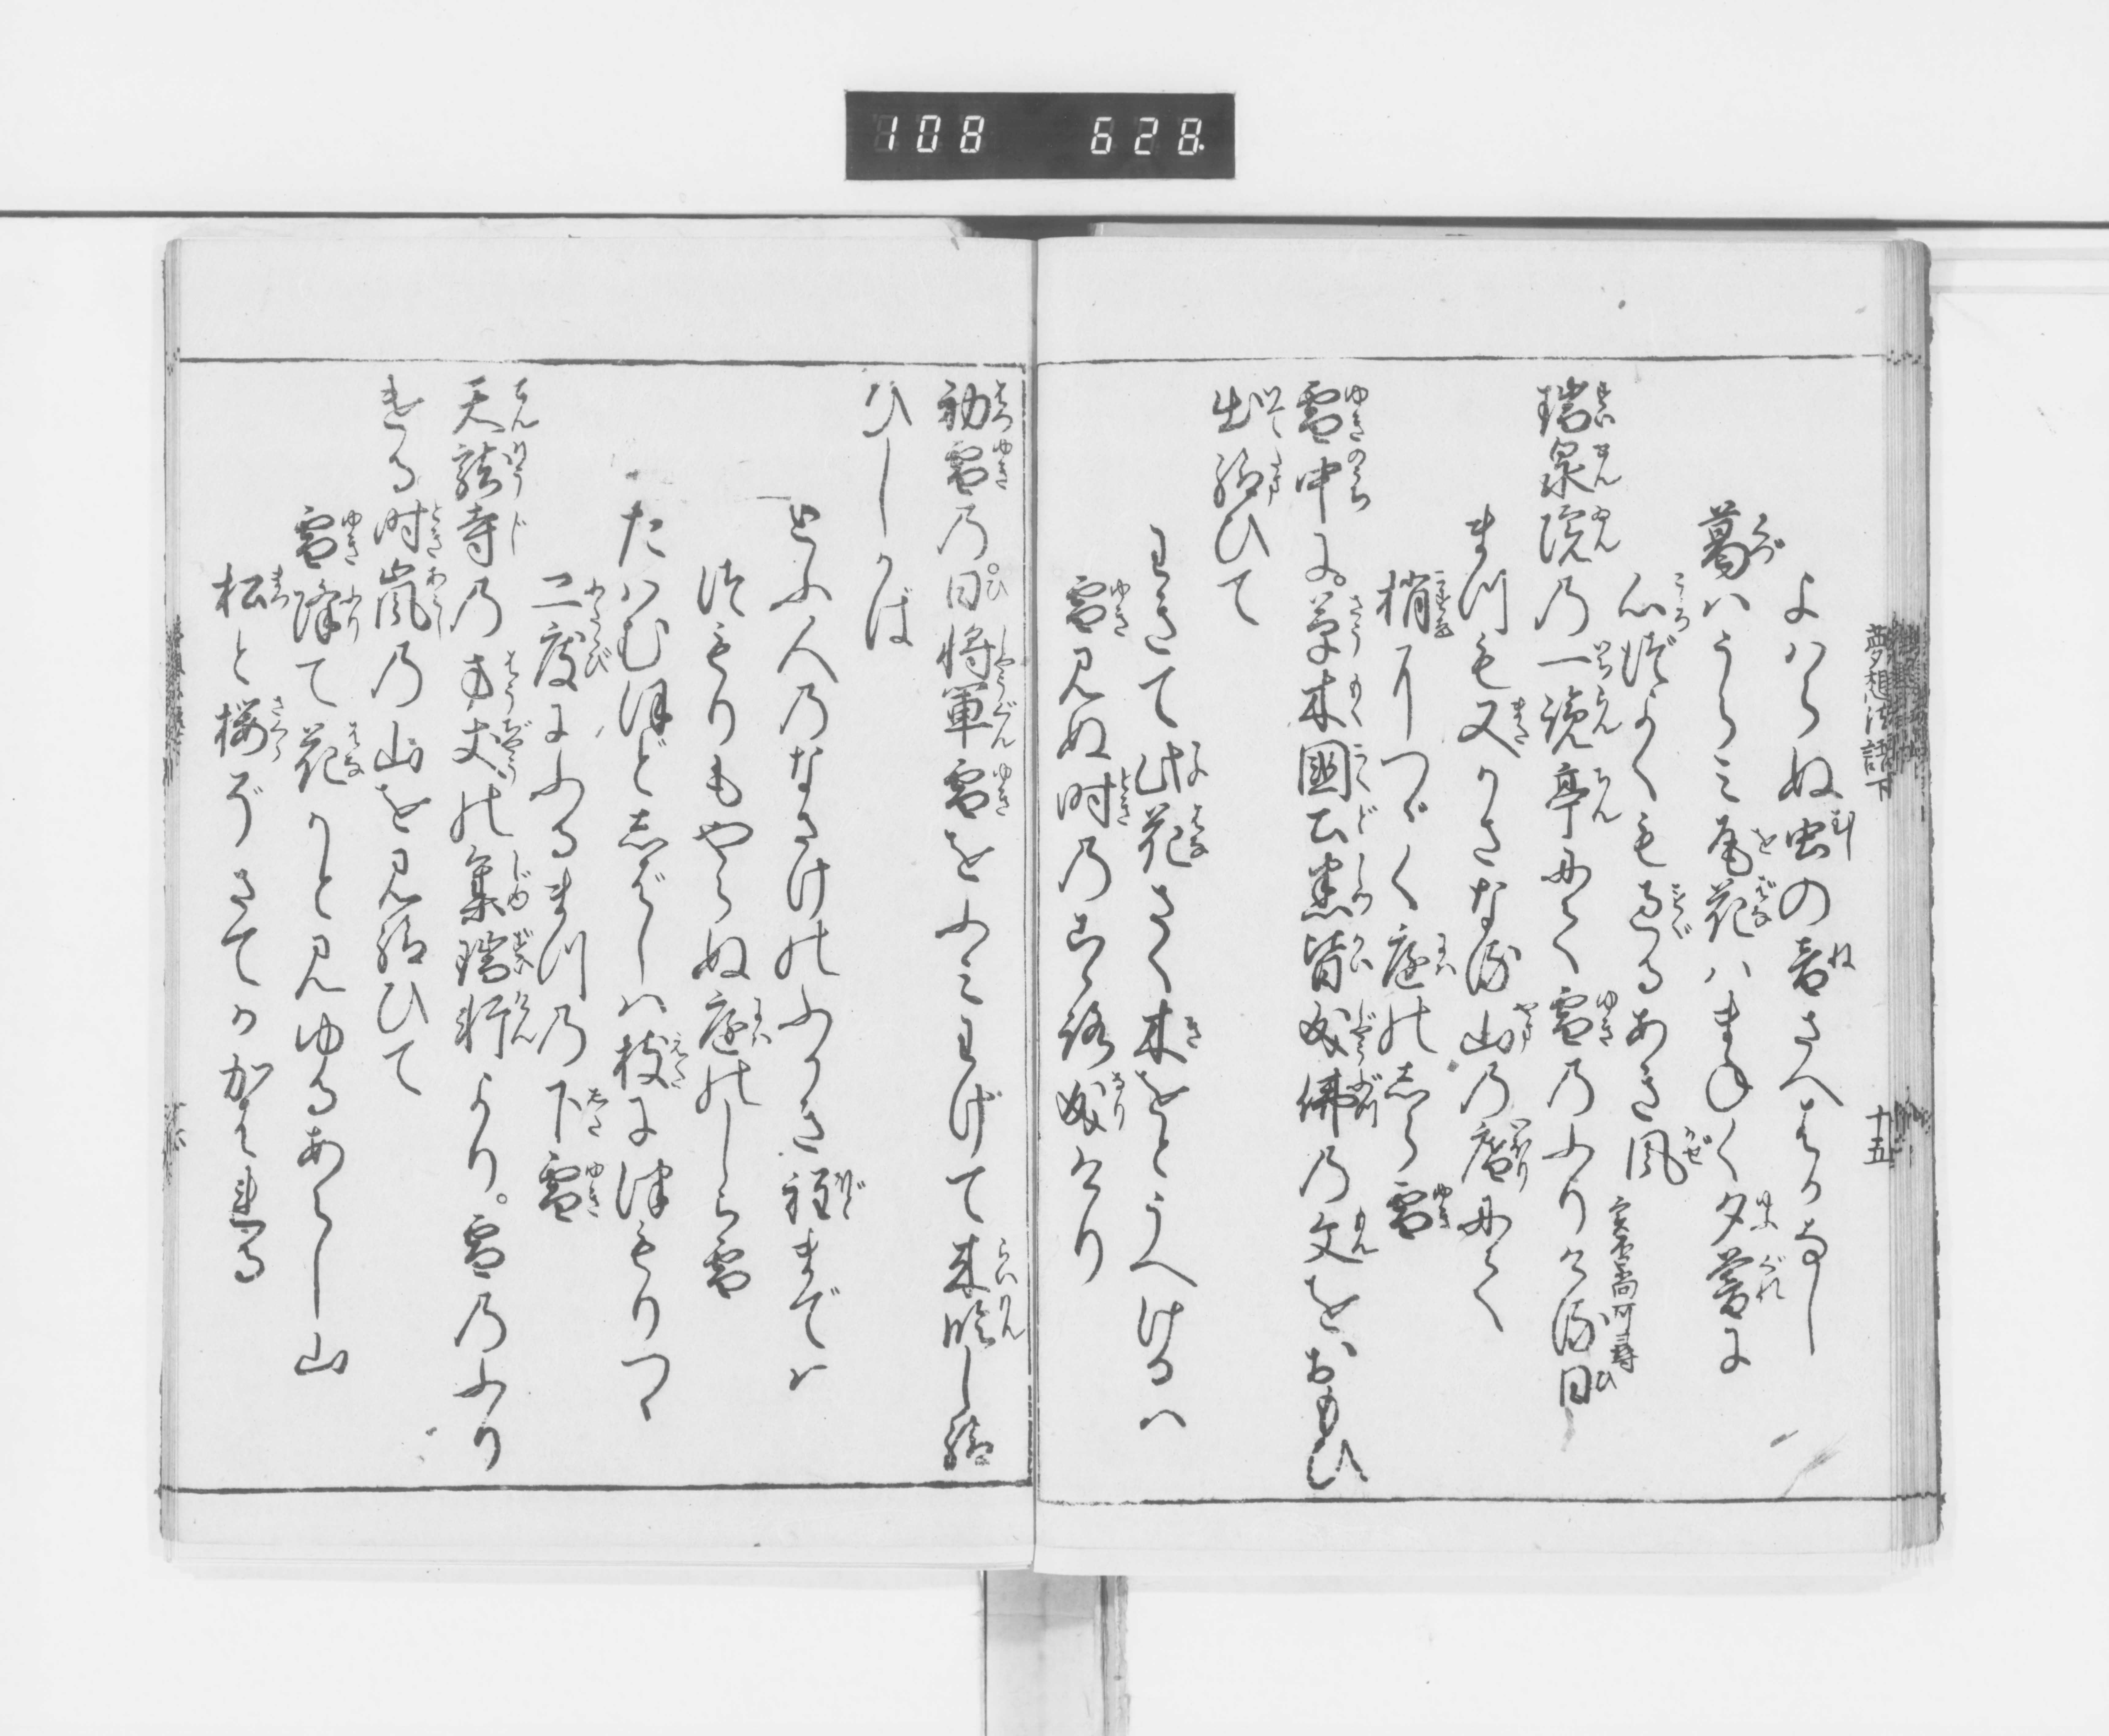 108 628
夢想法語下 十五
よはらぬ虫の音さへはかなし
葛はうらみ尾花はまねく夕暮に
心づよくも過るあき風
瑞泉院乃一覧亭にて雪乃ふりける日
まつも又かさなる山乃庵にて
梢につゞく庭のしら雪
雪中に。草木國土悉皆成佛乃文を、おもひ
出給ひて
わきて此花さく木をとうへけるは
雪見ぬ時乃こゝろ成けり
初雪乃。日将軍雪をふみわけて来臨し給
ひしかば
とふ人乃なさけのふかき程までは
つもりもやらぬ庭のしら雪
たはむほどしばしは枝につもりつゝ
二度にふるまつ乃下雪
天龍寺乃方丈の集瑞軒より。雪乃ふり
ける時嵐乃山を見給ひて
雪降て花かと見ゆるあらし山
松と桜ぞさてかかはれる